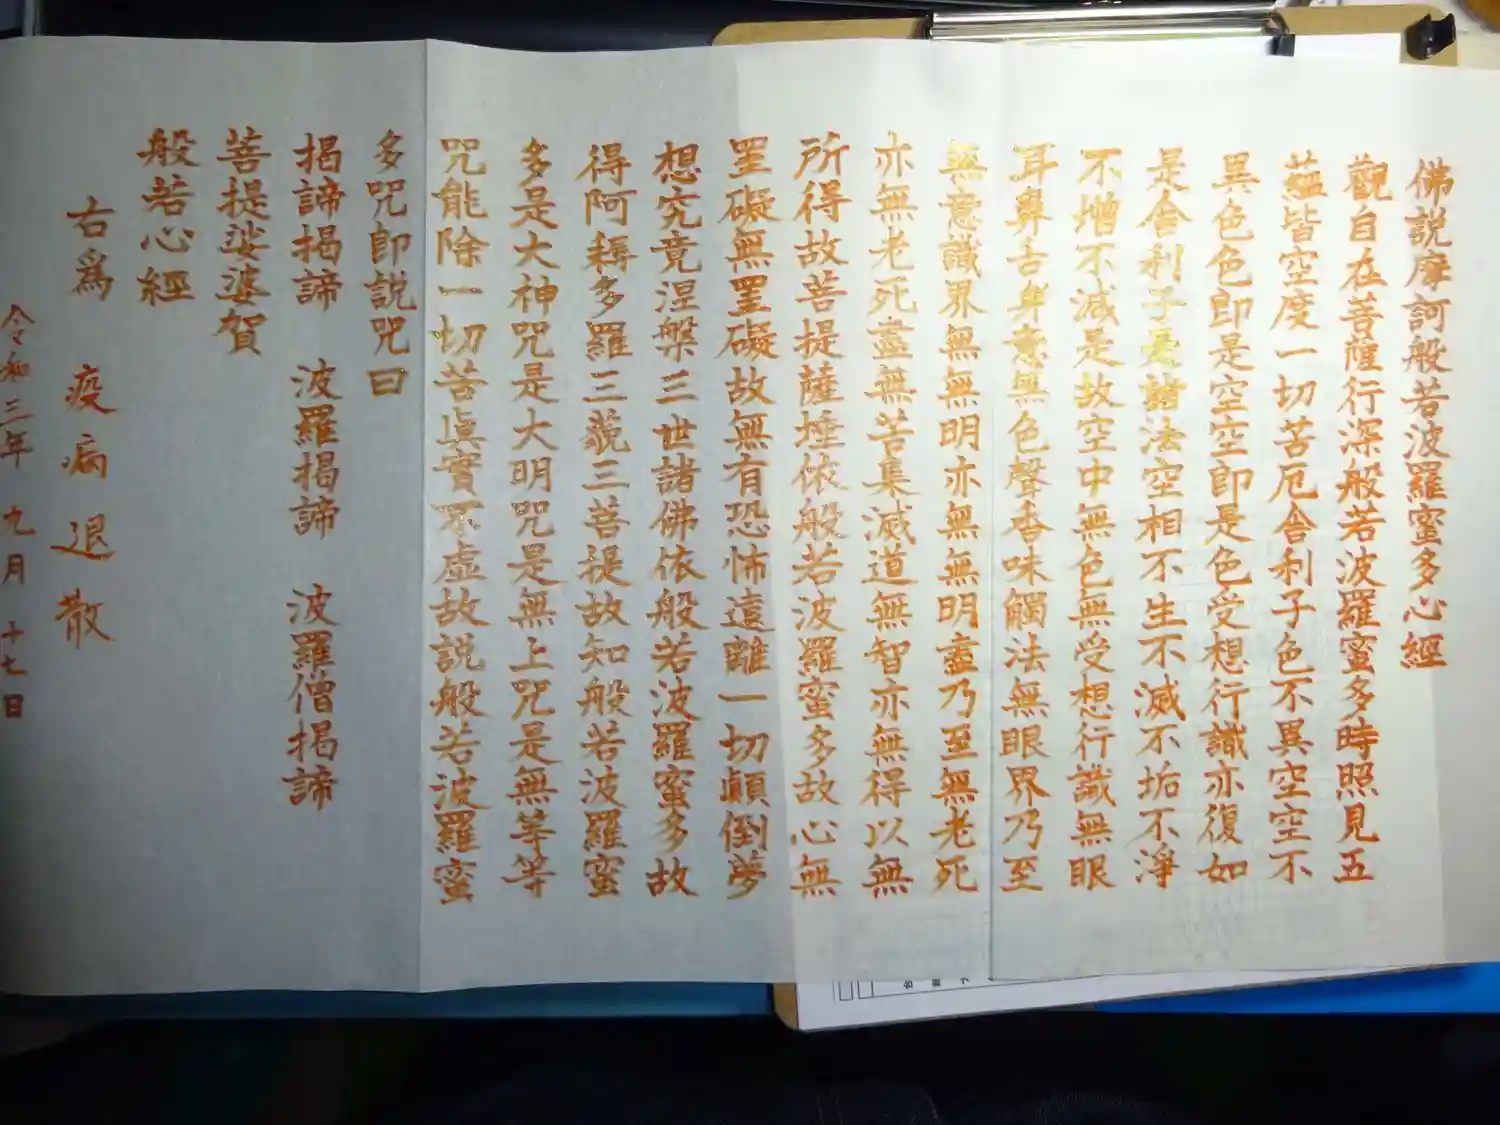 佛説摩訶般若波羅蜜多心經
觀自在菩薩行深般若波羅蜜多時照見五
蘊皆空度一切苦厄舎利子色不異空空不
異色色即是空空即是色受想行識亦復如
是舎利子是諸法空相不生不滅不垢不淨
不增不減是故空中無色無受想行識無眼
耳鼻舌身意無色聲香味觸法無眼界乃至
無意識界無無明亦無無明盡乃至無老死
亦無老死盡無苦集滅道無智亦無得以無
所得故菩提薩埵依般若波羅蜜多故心無
罣礙無罣礙故無有恐怖遠離一切顛倒夢
想究竟涅槃三世諸佛依般若波羅蜜多故
得阿耨多羅三藐三菩提故知般若波羅蜜
多是大神咒是大明咒是無上咒是無等等
咒能除一切苦眞實不虚故説般若波羅蜜
多咒即説咒曰
揭諦揭諦 波羅揭諦 波羅僧揭諦
菩提娑婆賀
般若心經
右爲 疫病退散
令和三年九月十七日